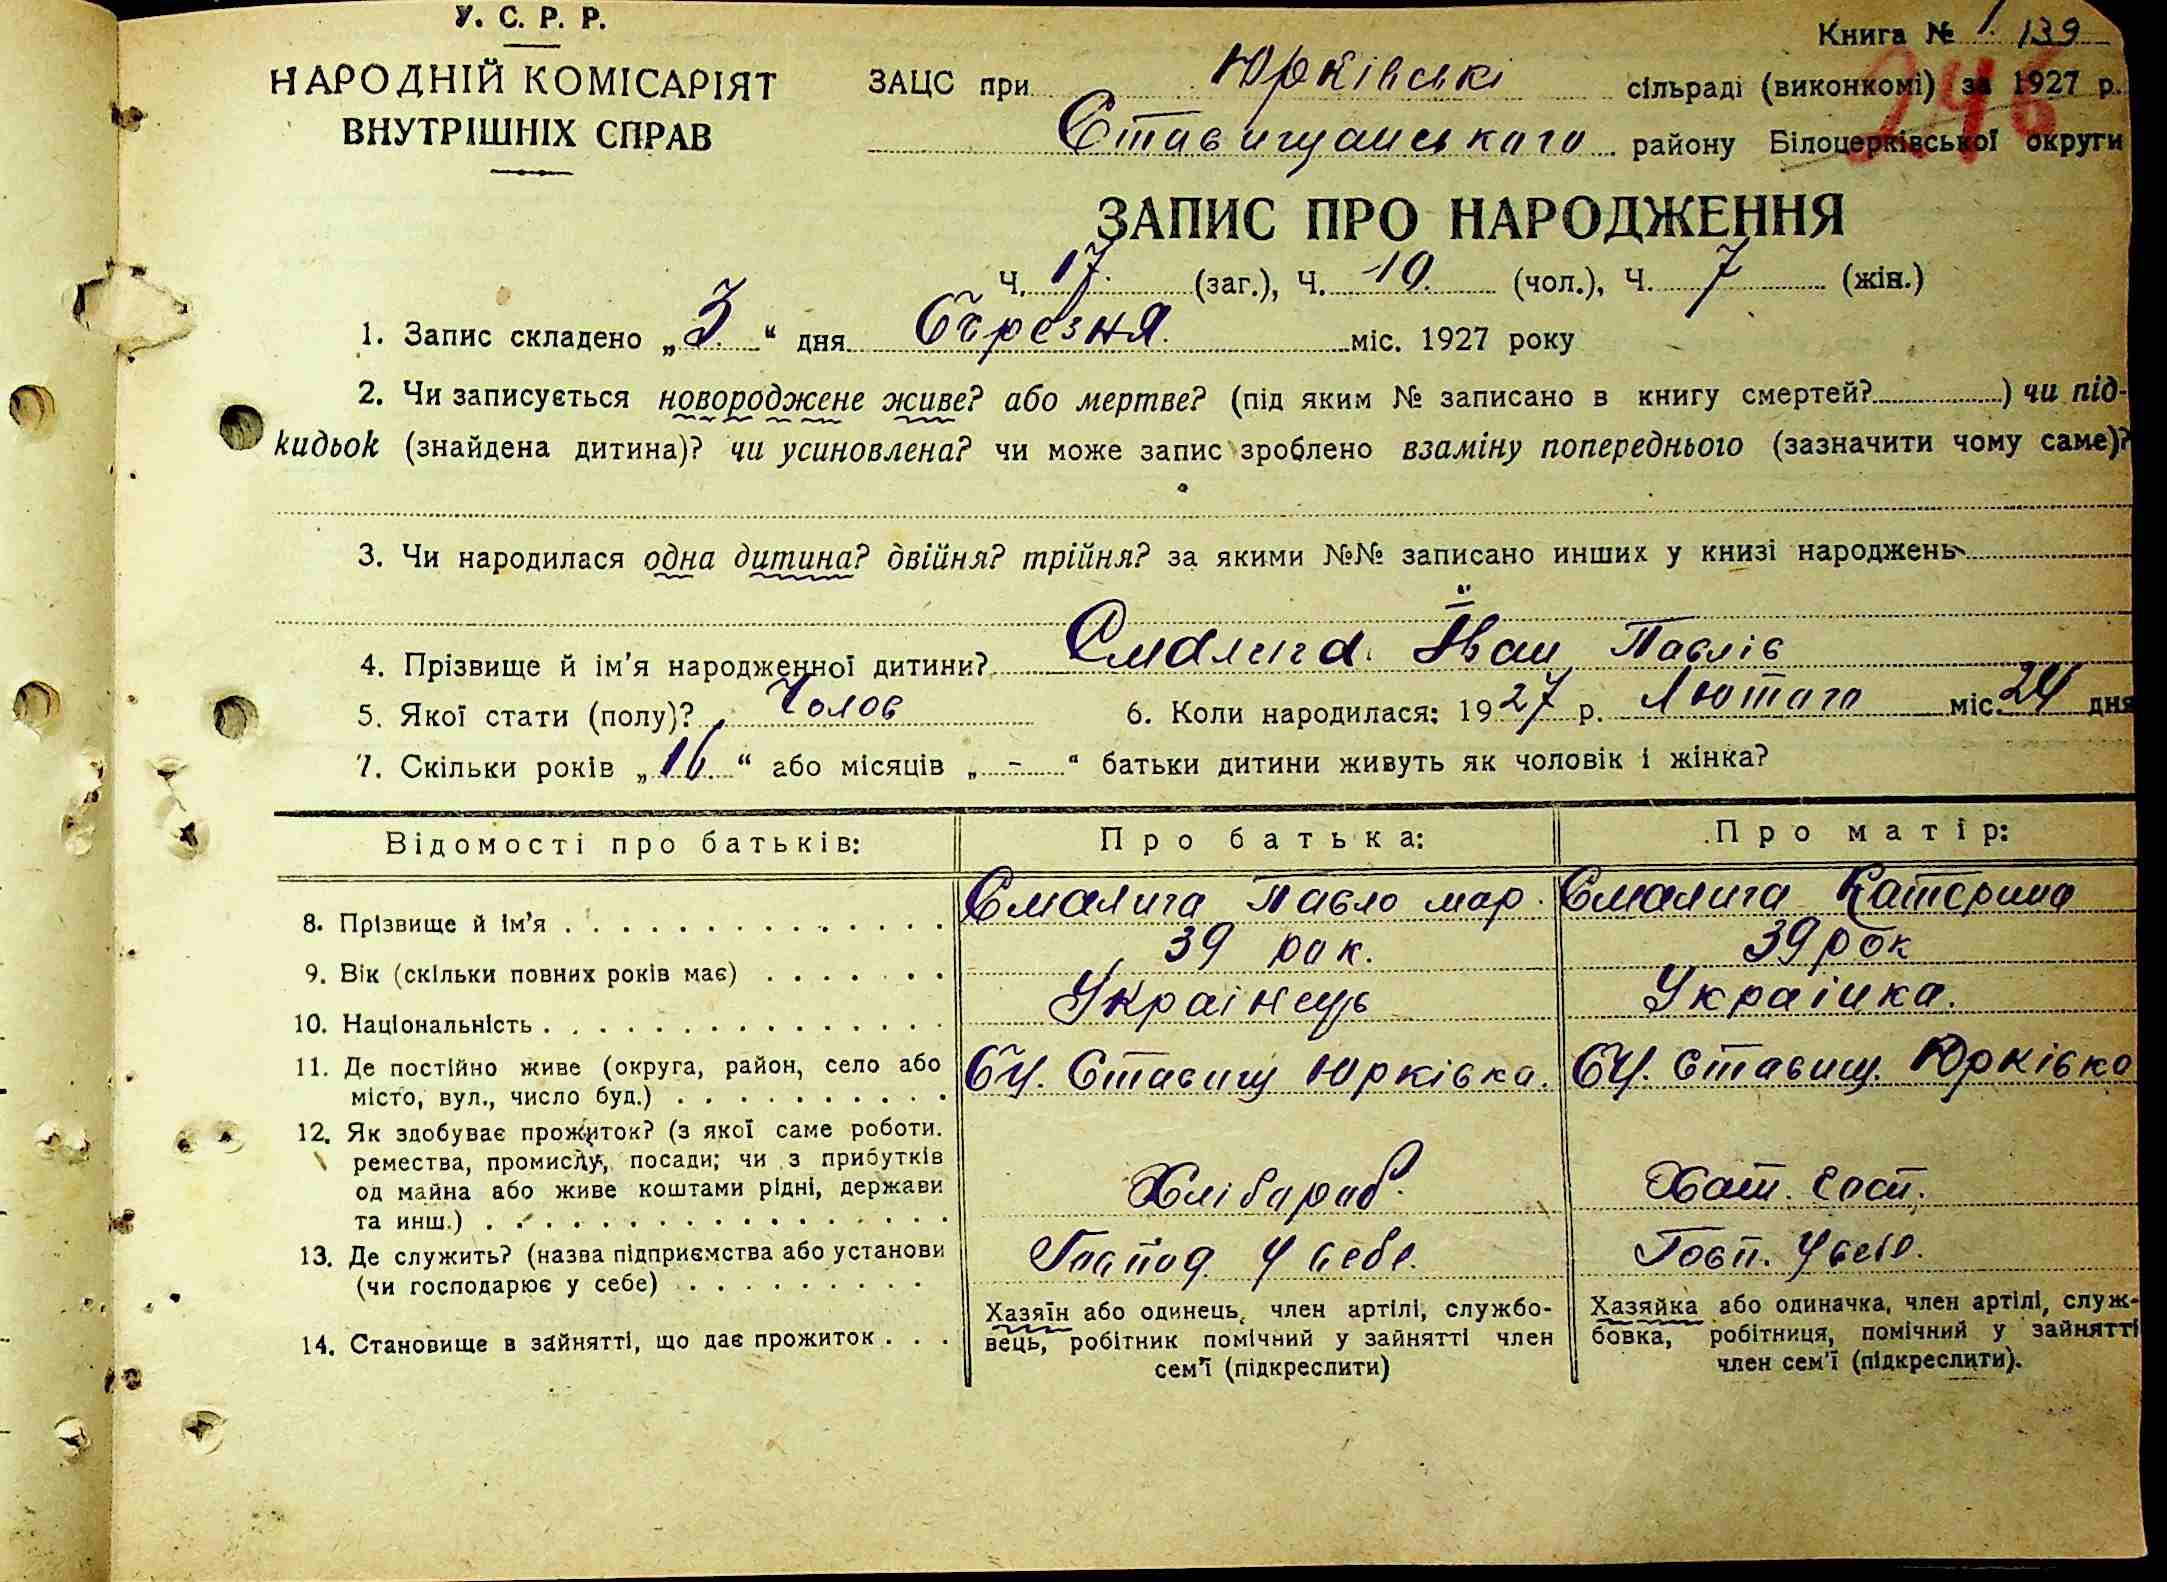 У. С. Р. Р.
НАРОДНІЙ КОМІСАРІЯТ
ВНУТРІШНІХ СПРАВ
Книга № 1. 139
246
ЗАЦС при Юрківські сільраді (виконкомі) за 1927 р.
Ставищанського району Білоцерківської округи
ЗАПИС ПРО НАРОДЖЕННЯ
Ч. 17. (заг.), Ч. 10. (чол.), Ч. 7 (жін.)
1. Запис складено „3.“ дня Березня. міс. 1927 року
2. Чи записується новороджене живе? або мертве? (під яким № записано в книгу смертей?) чи під-
кидьок (знайдена дитина)? чи усиновлена? чи може запис зроблено взаміну попереднього (зазначити чому саме)?
3. Чи народилася одна дитина? двійня? трійня? за якими №№ записано инших у книзі народжень
4. Прізвище й ім'я народженної дитини? Смалига Іван Павлів
5. Якої стати (полу)? Чолов 6. Коли народилася: 1927 р. Лютого міс. 24 дня
7. Скільки років „16.“ або місяців „-“ батьки дитини живуть як чоловік і жінка?
Відомості про батьків: Про батька: Про матір:
8. Прізвище й ім'я Смалига Павло мар. Смалига Катерина
9. Вік (скільки повних років має) 39 рок. 39 рок
10. Національність Украінець Украінка.
11. Де постійно живе (округа, район, село або
місто, вул., число буд.) БЦ. Ставищ Юрківка. БЦ. Ставищ. Юрківка
12. Як здобуває прожиток? (з якої саме роботи.
ремества, промислу, посади; чи з прибутків
од майна або живе коштами рідні, держави
та инш.) Хлібароб. Хат. Госп.
13. Де служить? (назва підприємства або установи
(чи господарює у себе) Господ. У себе. Госп. У себе.
14. Становище в зайнятті, що дає прожиток
Хазяїн або одинець, член артілі, службо-
вець, робітник помічний у зайнятті член
сем'ї (підкреслити)
Хазяйка або одиначка, член артілі, служ-
бовка, робітниця, помічний у зайнятті
член сем'ї (підкреслити).